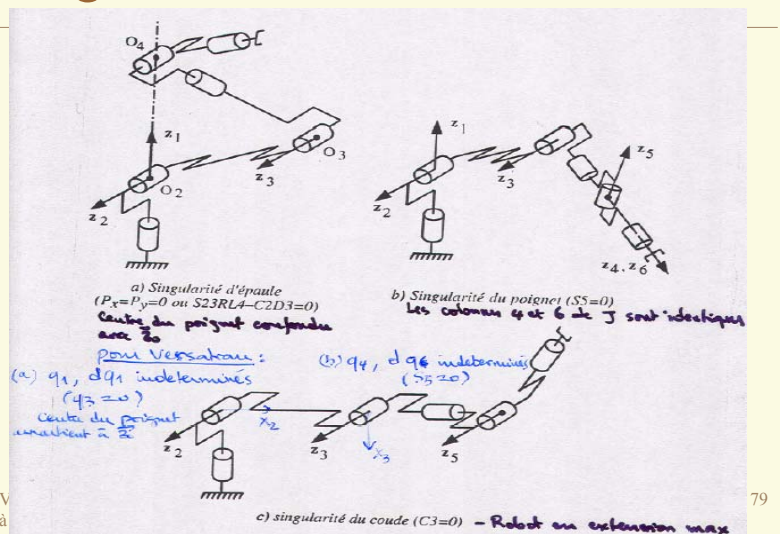 O4
z1
O3
z3
O2
z2
a) Singularité d'épaule
(Px=Py=0 ou S23RL4–C2D3=0)
Centre du poignet confondu
avec z0
z1
z5
z3
z2
z4, z6
b) Singularité du poignet (S5=0)
Les colonnes 4 et 6 de J sont identiques
pour Versatran :
(a) q1, dq1 indeterminés
(q3=0)
Centre du poignet
appartient à
(b) q4, dq6 indeterminés
(S5=0)
x2
z2
z3
x3
z5
c) singularité du coude (C3=0) – Robot en extension max
V
à
79